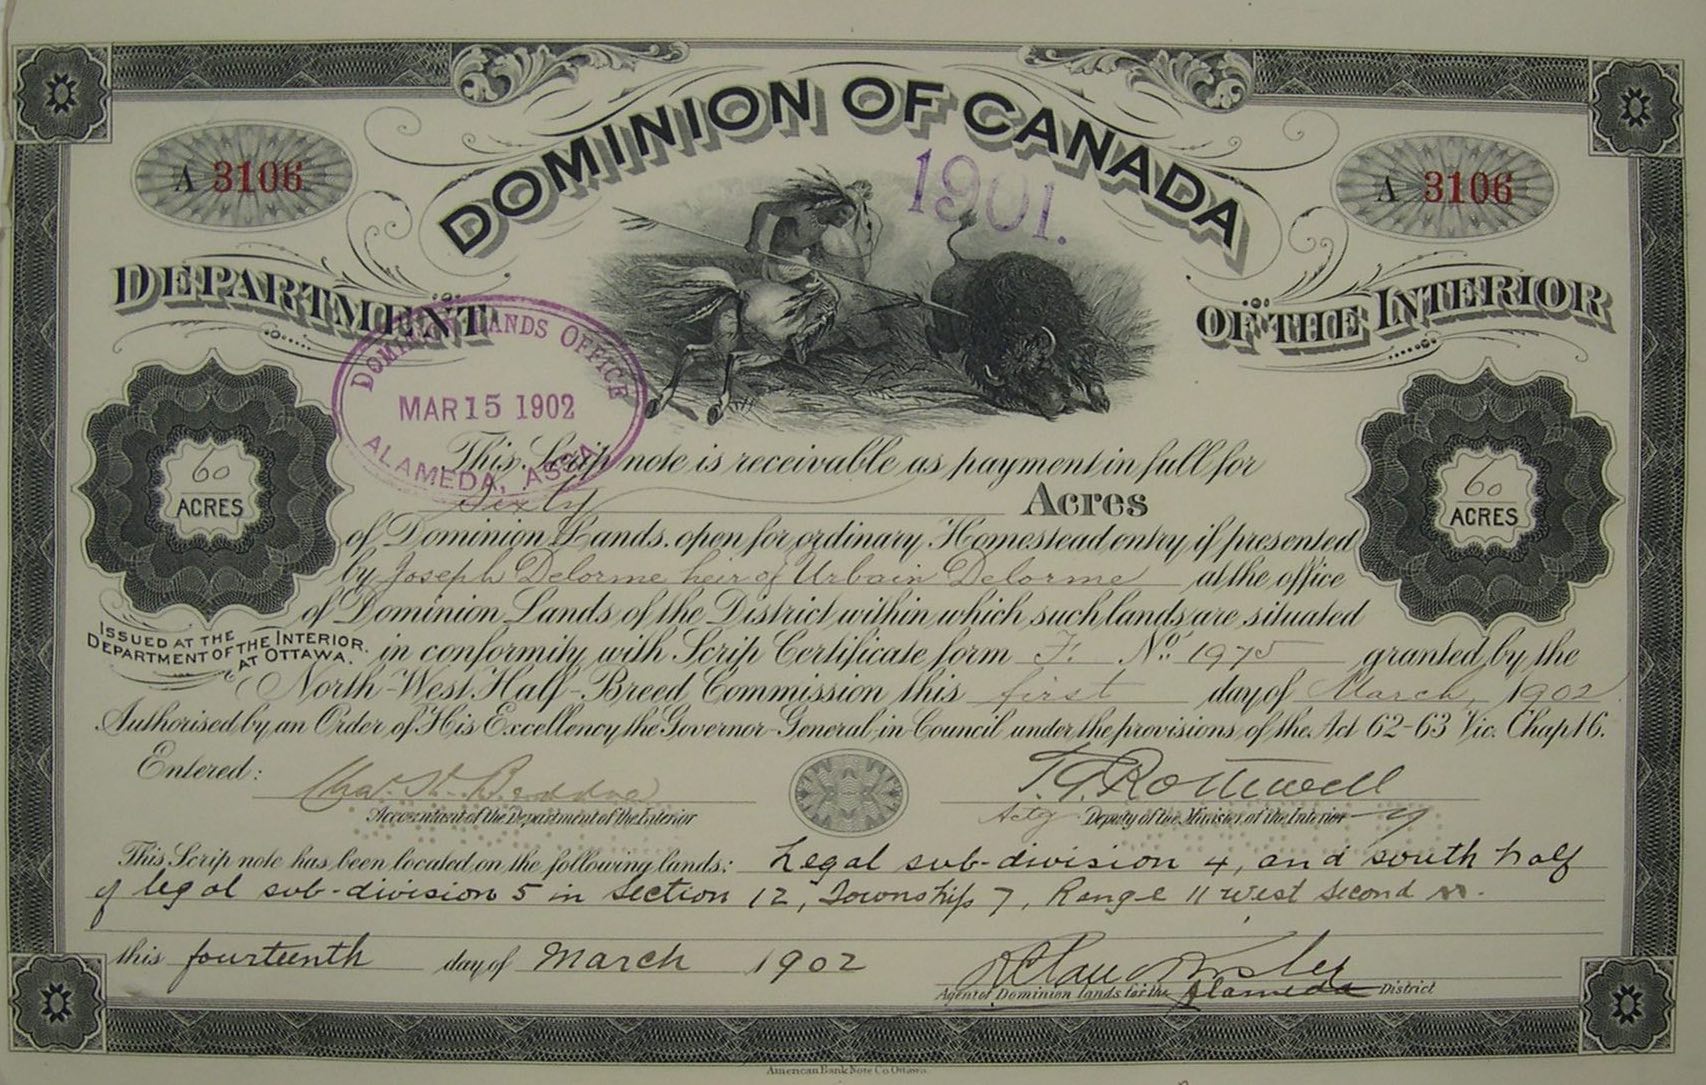 DOMINION OF CANADA
1901.
A 3106
A 3106
DEPARTMENT OF THE INTERIOR
DOMINION LANDS OFFICE
MAR 15 1902
ALAMEDA, ASSA.
60
ACRES
60
ACRES
This Scrip note is receivable as payment in full for
Sixty Acres
of Dominion Lands. open for ordinary Homestead entry if presented
by Joseph Delorme heir of Urbain Delorme at the office
of Dominion Lands of the District within which such lands are situated
ISSUED AT THE
DEPARTMENT OF THE INTERIOR
AT OTTAWA.
in conformity with Scrip Certificate form F. No. 1975 granted by the
North-West Half-Breed Commission this first day of March, 1902
Authorised by an Order of His Excellency the Governor-General-in-Council under the provisions of the Act 62-63 Vic. Chap 16.
Entered:
Accountant of the Department of the Interior
T. G. Rothwell
Actg Deputy of the Minister of the Interior
This Scrip note has been located on the following lands: Legal sub-division 4, and south half
of legal sub-division 5 in section 12, Township 7, Range 11 west second M.
this fourteenth day of March 1902
Agent of Dominion lands for the Alameda District
American Bank Note Co. Ottawa.